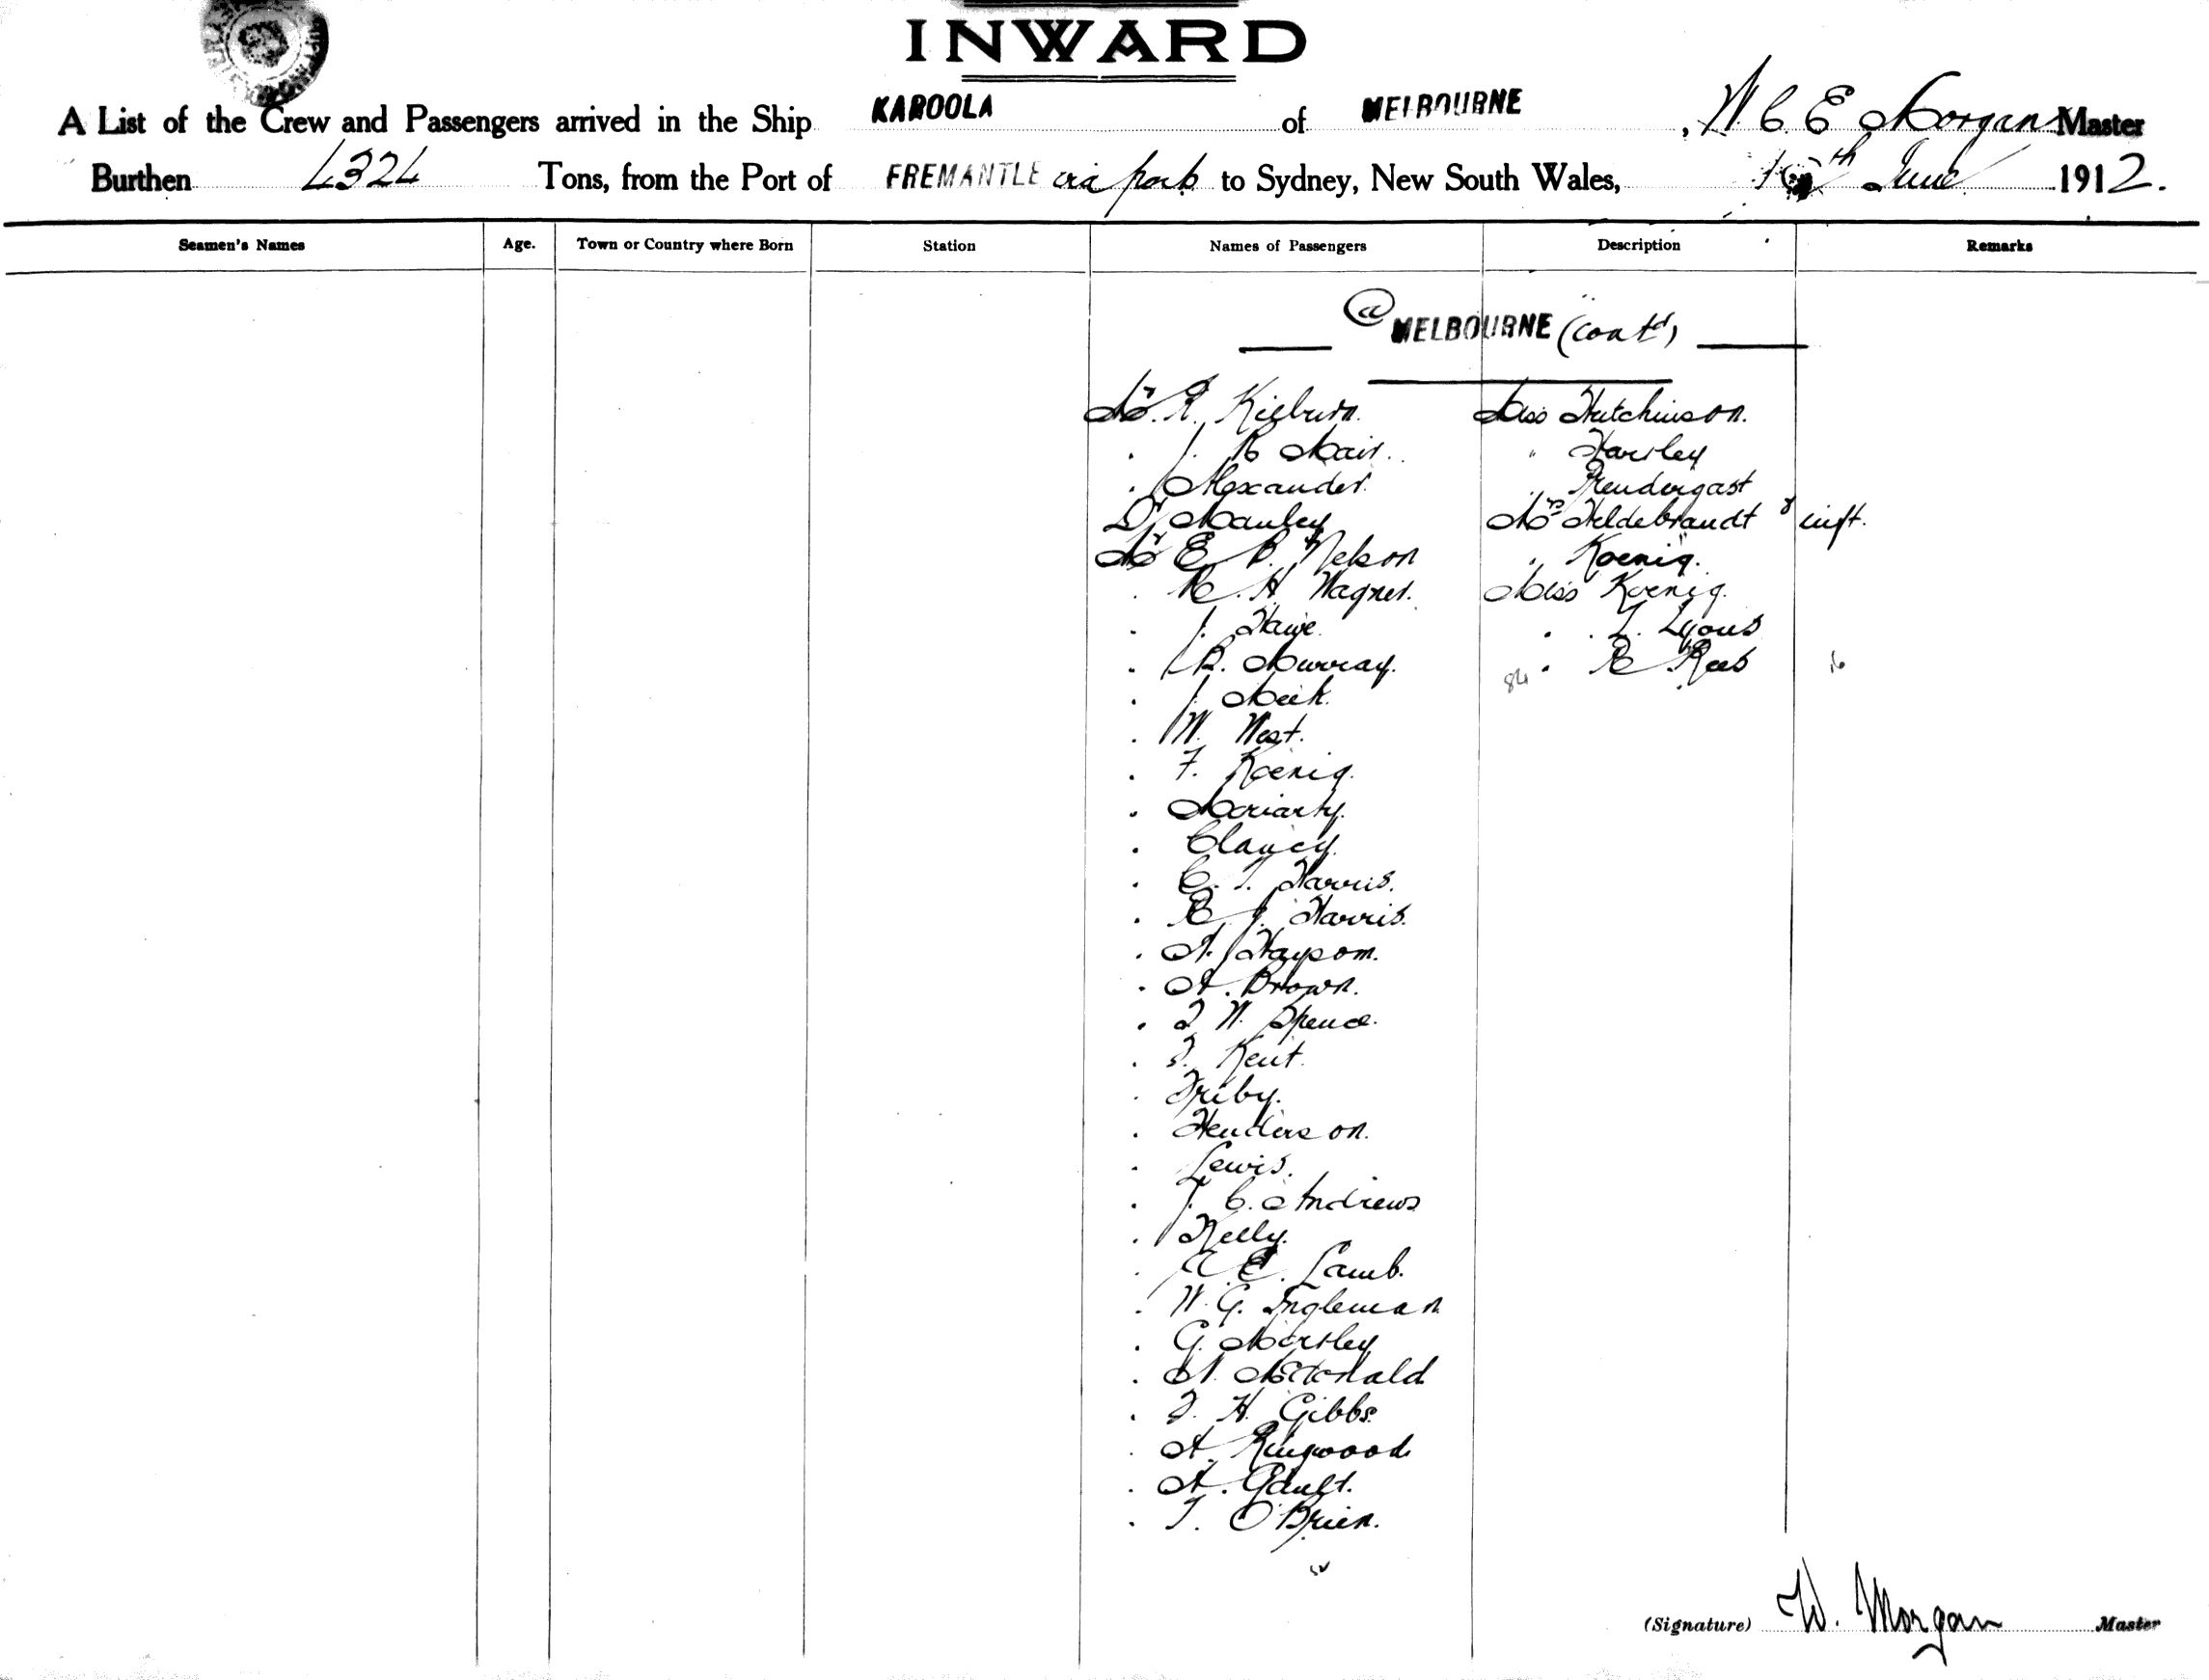 INWARD
A List of the Crew and Passengers arrived in the Ship KAROOLA of MELBOURNE, W C E Morgan Master
Burthen 4324 Tons, from the Port of FREMANTLE via ports to Sydney, New South Wales, th June 1912.
Seamen's Names Age. Town or Country where Born Station Names of Passengers Description Remarks
@ MELBOURNE (contd)
Mr. Kilburn. Miss Hutchinson.
. J. R Mair. " Hartley
. Alexander. " Prendergast
Dr Manley Mrs Hildebrandt & inft.
Mr E B. Nelson " Koenig.
. R. H Wagner. Miss Koenig.
. J. Hawe. . L. Lyons
. R. Murray. . R Rees 16
84
. J. Meek.
. W. West.
. F. Koenig.
. Moriarty.
. Clancy.
. C. T. Harris.
. R J. Harris.
. A. Haysom.
. A. Brown.
. W. Spence.
. Kent.
. Friby.
. Henderson.
. Lewis.
. J. C. Andrews
. Kelly.
. A E. Lamb.
. W. G. Ingleman
. G. Morsley
. N. McDonald
. F. H. Gibbs.
. A. Ringwood.
. A. Gault.
. T. O'Brien.
(Signature) W. Morgan Master